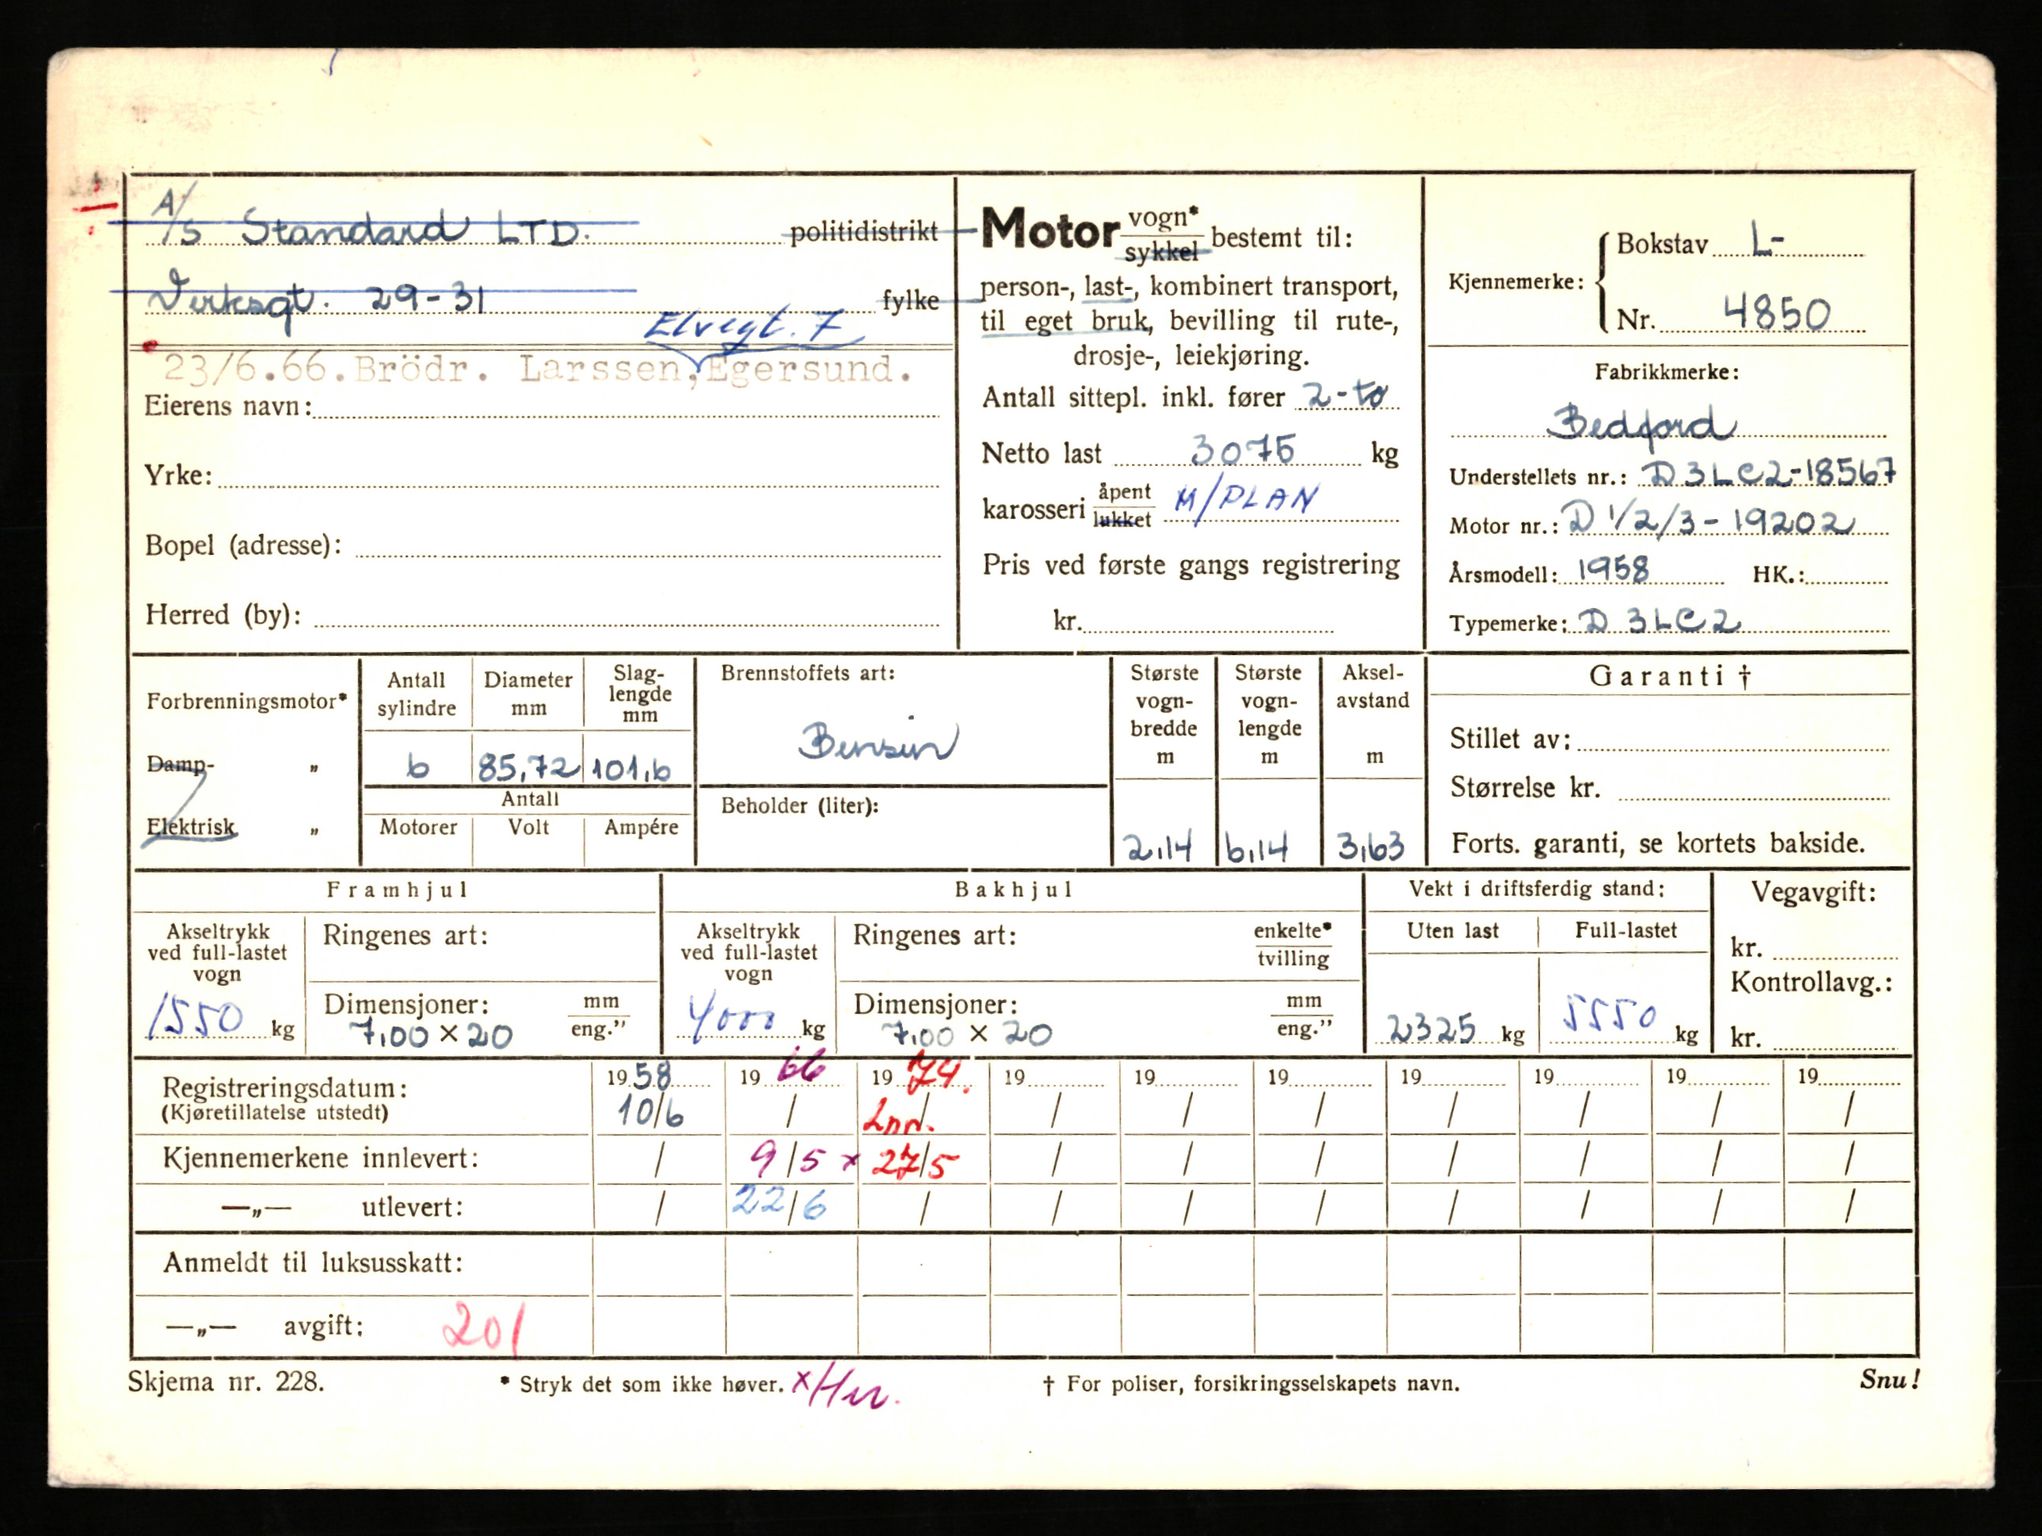 A/S Standard LTD. politidistrikt
Verksgt. 29-31 fylke
Elvegt. 7
23/6.66. Brödr. Larssen, Egersund.
Eierens navn:
Yrke:
Bopel (adresse):
Herred (by):
Motor vogn* / sykkel bestemt til:
person-, last-, kombinert transport,
til eget bruk, bevilling til rute-,
drosje-, leiekjøring.
Antall sittepl. inkl. fører 2-to
Netto last 3075 kg
karosseri åpent / lukket M/PLAN
Pris ved første gangs registrering
kr.
Kjennemerke: Bokstav L-
Nr. 4850
Fabrikkmerke:
Bedford
Understellets nr.: D3LC2-18567
Motor nr.: D 1/2/3-19202
Årsmodell: 1958 HK.:
Typemerke: D 3LC2
Forbrenningsmotor*
Damp- „
Elektrisk „
Antall sylindre
6
Diameter mm
85,72
Slag-lengde mm
101,6
Antall
Motorer Volt Ampére
Brennstoffets art:
Bensin
Beholder (liter):
Største vogn-bredde m
2,14
Største vogn-lengde m
6,14
Aksel-avstand m
3,63
Garanti †
Stillet av:
Størrelse kr.
Forts. garanti, se kortets bakside.
Framhjul
Akseltrykk ved full-lastet vogn
1550 kg
Ringenes art:
Dimensjoner: mm / eng.”
7,00 × 20
Bakhjul
Akseltrykk ved full-lastet vogn
4000 kg
Ringenes art: enkelte* / tvilling
Dimensjoner: mm / eng.”
7,00 × 20
Vekt i driftsferdig stand:
Uten last Full-lastet
2325 kg 5550 kg
Vegavgift:
kr.
Kontrollavg.:
kr.
Registreringsdatum: 1958 1966 1974. 19 19 19 19 19 19 19
(Kjøretillatelse utstedt) 10/6 / Inn. / / / / / / / /
Kjennemerkene innlevert: / 9/5 x 27/5 / / / / / / /
—„— utlevert: / 22/6 / / / / / / / /
Anmeldt til luksusskatt:
—„— avgift: 201
Skjema nr. 228. * Stryk det som ikke høver. † For poliser, forsikringsselskapets navn. Snu!